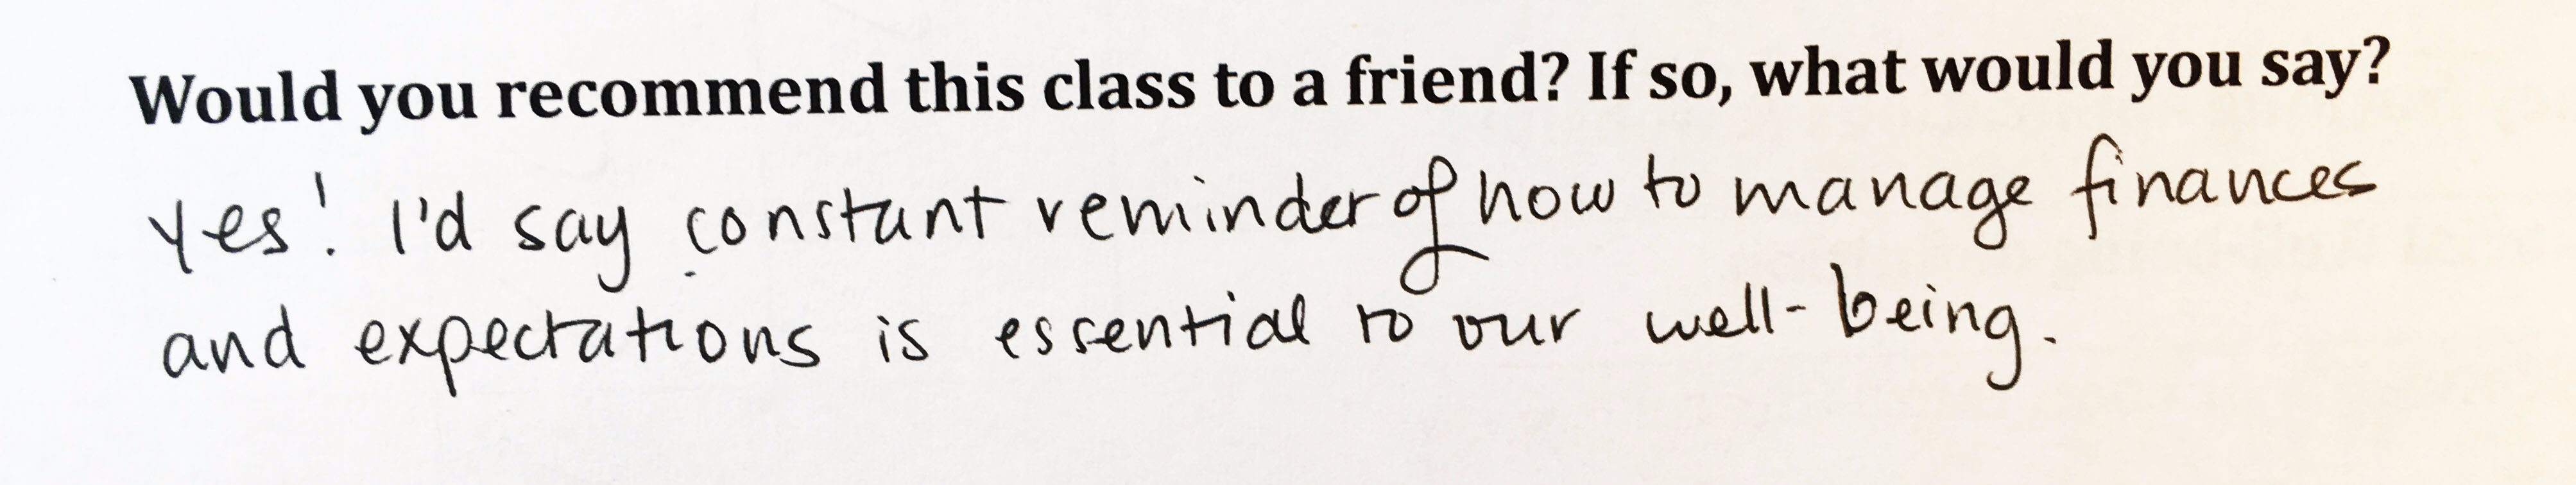 Would you recommend this class to a friend? If so, what would you say?
Yes! I'd say constant reminder of how to manage finances
and expectations is essential to our well-being.